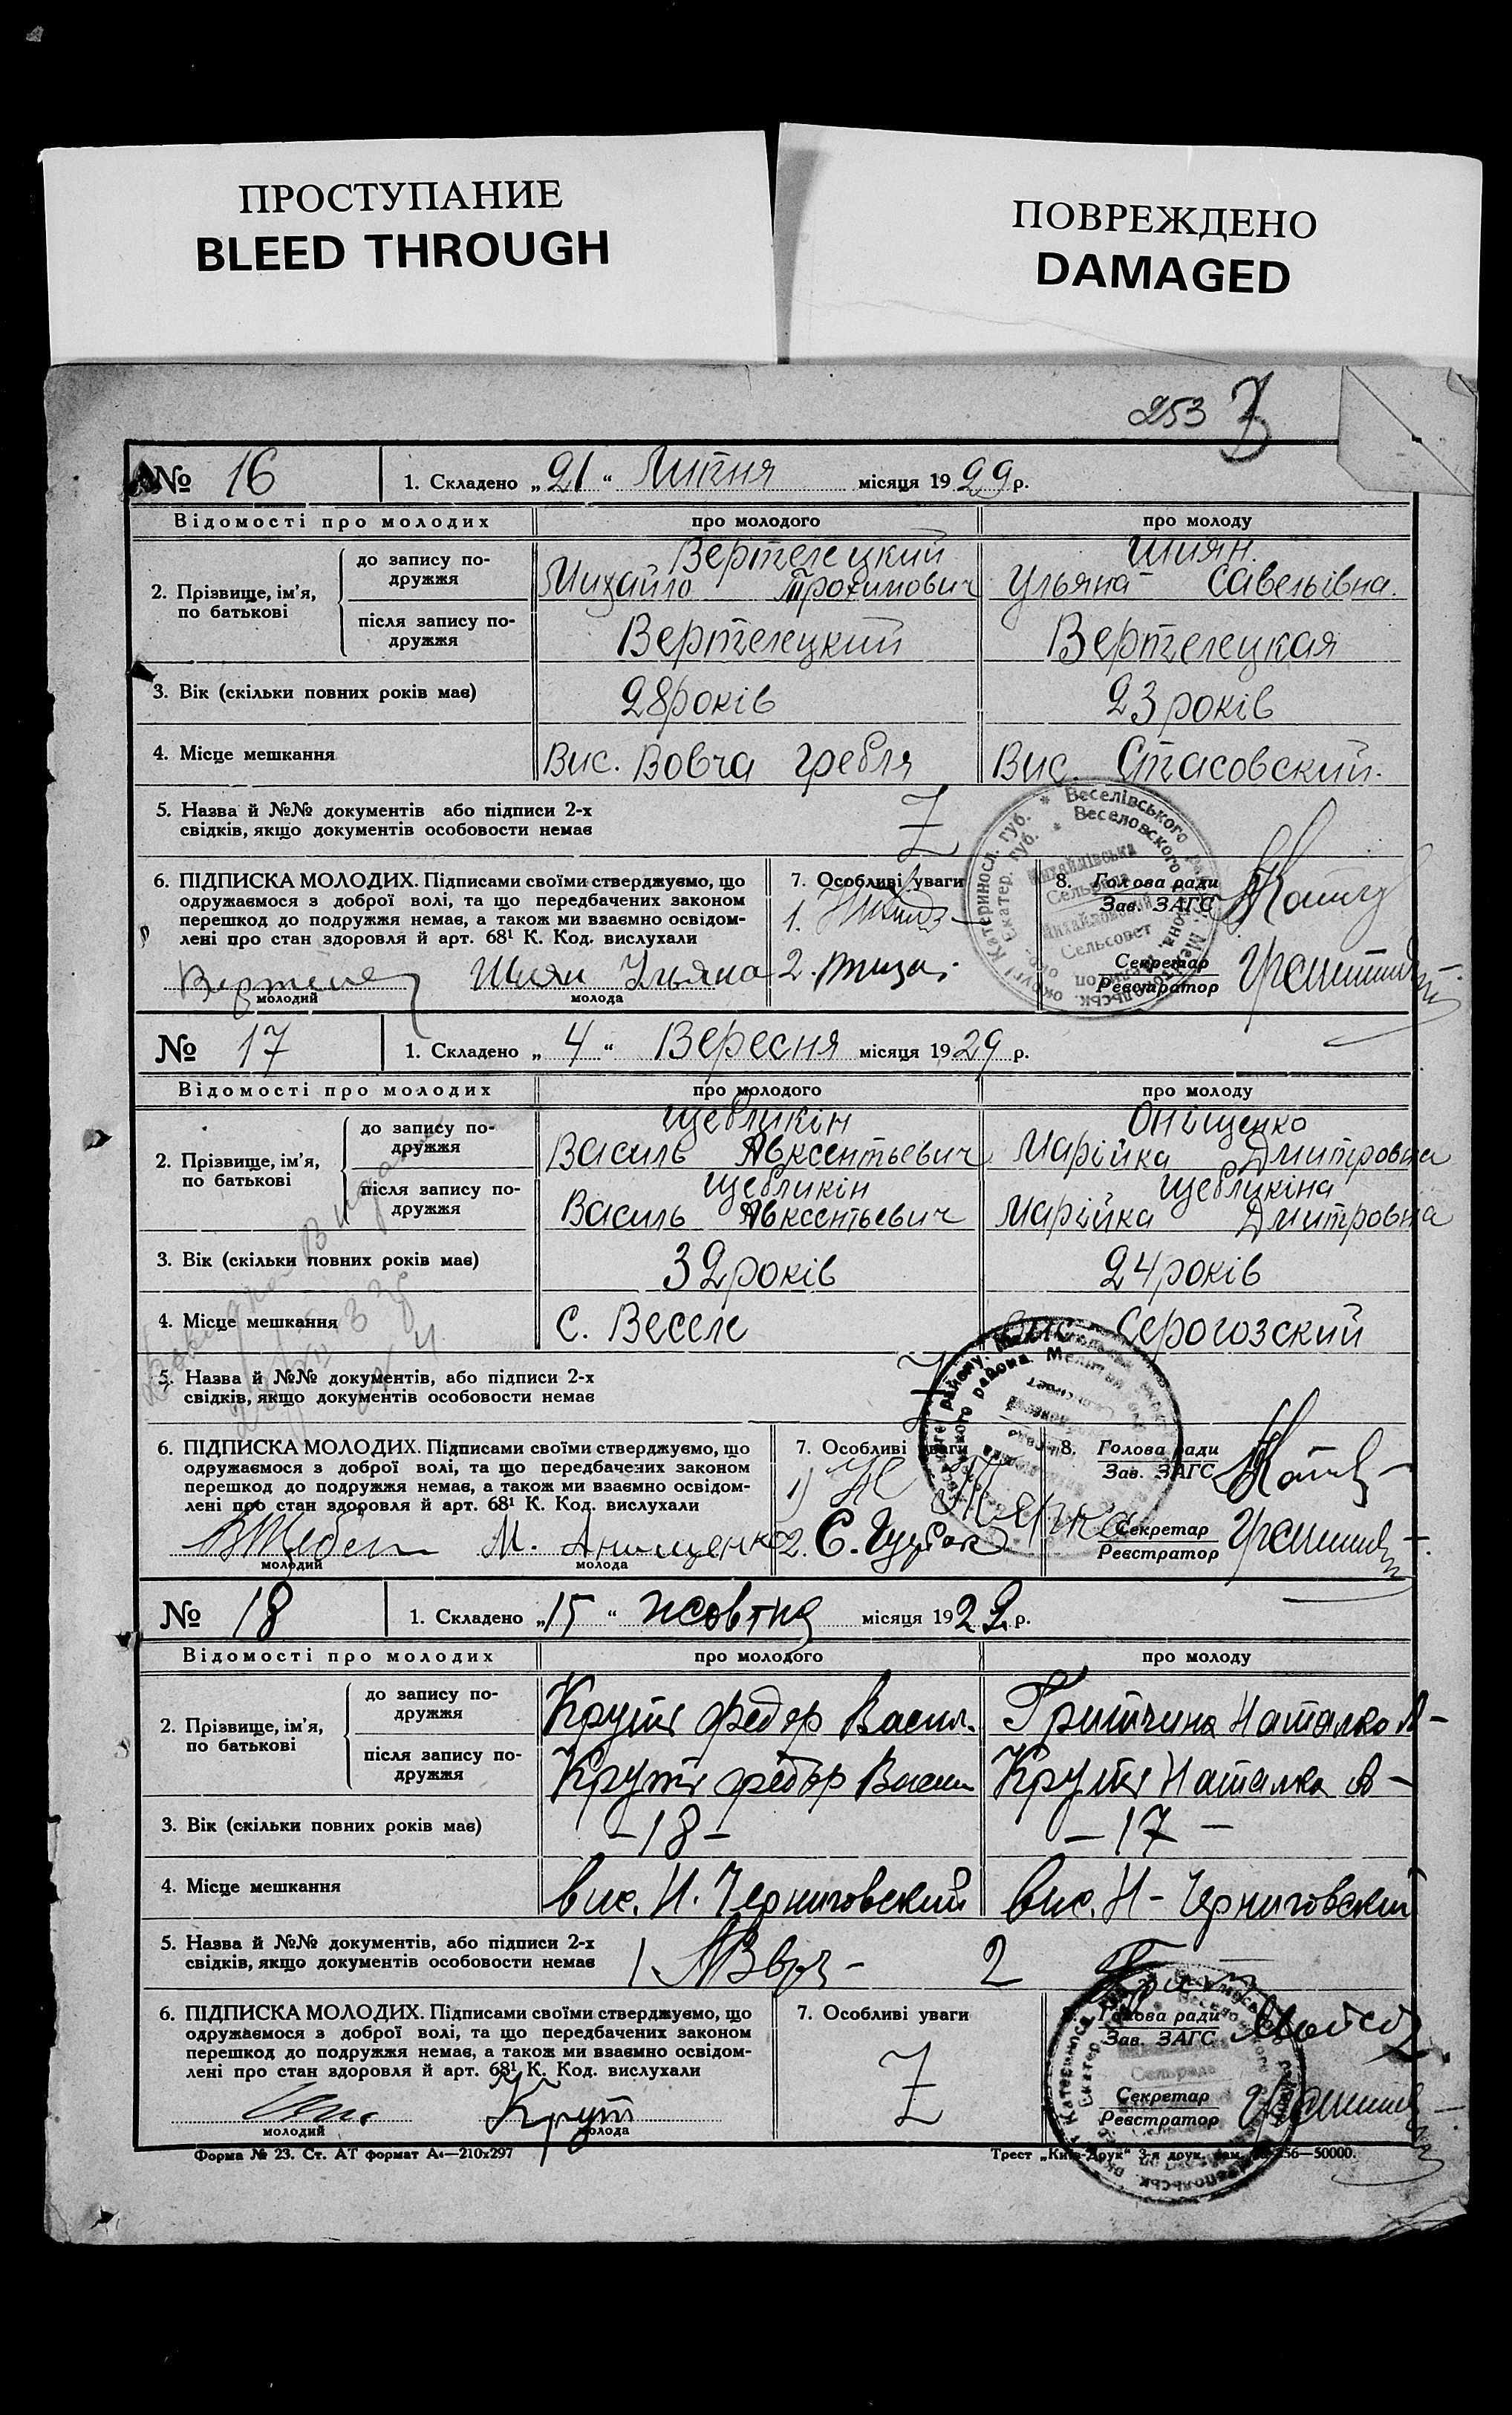 ПРОСТУПАНИЕ
BLEED THROUGH
ПОВРЕЖДЕНО
DAMAGED
253
№ 16 1. Складено „21“ Липня місяця 1929 р.
Відомості про молодих про молодого про молоду
2. Прізвище, ім’я, по батькові
до запису подружжя
Вертелецкий Шиян
Михайло Трохимович Ульяна Савельівна.
після запису подружжя
Вертелецкий Вертелецкая
3. Вік (скільки повних років має) 28 років 23 років
4. Місце мешкання Вис. Вовча гребля Вис. Стасовский.
5. Назва й №№ документів або підписи 2-х
свідків, якщо документів особовости немає
6. ПІДПИСКА МОЛОДИХ. Підписами своїми стверджуємо, що
одружаємося з доброї волі, та що передбачених законом
перешкод до подружжя немає, а також ми взаємно освідом-
лені про стан здоровля й арт. 68¹ К. Код. вислухали
молодий Шиян Ульяна молода
7. Особливі уваги
1.
2.
8. Голова ради
Зав. ЗАГС
Секретар
Реєстратор
Веселівського
Веселовского
Михайлівська
Сельрада
Михайловский
Сельсовет
№ 17 1. Складено „4“ Вересня місяця 1929 р.
Відомості про молодих про молодого про молоду
2. Прізвище, ім’я, по батькові
до запису подружжя
Щебликін Онищенко
Василь Авксентьевич Марійка Дмитровна
після запису подружжя
Щебликін Щебликіна
Василь Авксентьевич Марійка Дмитровна
3. Вік (скільки повних років має) 32 років 24 років
4. Місце мешкання С. Веселе Вис. Серогозский
5. Назва й №№ документів, або підписи 2-х
свідків, якщо документів особовости немає
6. ПІДПИСКА МОЛОДИХ. Підписами своїми стверджуємо, що
одружаємося з доброї волі, та що передбачених законом
перешкод до подружжя немає, а також ми взаємно освідом-
лені про стан здоровля й арт. 68¹ К. Код. вислухали
молодий М. Анищенко молода
7. Особливі уваги
1)
2. С.
8. Голова ради
Зав. ЗАГС
Секретар
Реєстратор
№ 18 1. Складено „15“ жовтня місяця 1929 р.
Відомості про молодих про молодого про молоду
2. Прізвище, ім’я, по батькові
до запису подружжя
Федор Васил. Наталка
після запису подружжя
Наталка
3. Вік (скільки повних років має) –18– –17–
4. Місце мешкання вис. Н. Черниговский вис. Н-Черниговский
5. Назва й №№ документів, або підписи 2-х
свідків, якщо документів особовости немає
1. 2
6. ПІДПИСКА МОЛОДИХ. Підписами своїми стверджуємо, що
одружаємося з доброї волі, та що передбачених законом
перешкод до подружжя немає, а також ми взаємно освідом-
лені про стан здоровля й арт. 68¹ К. Код. вислухали
молодий Крут молода
7. Особливі уваги
Голова ради
Зав. ЗАГС
Секретар
Реєстратор
Форма № 23. Ст. АТ формат А4—210х297
Трест „Київ-Друк“ 3-я друк. 50000.